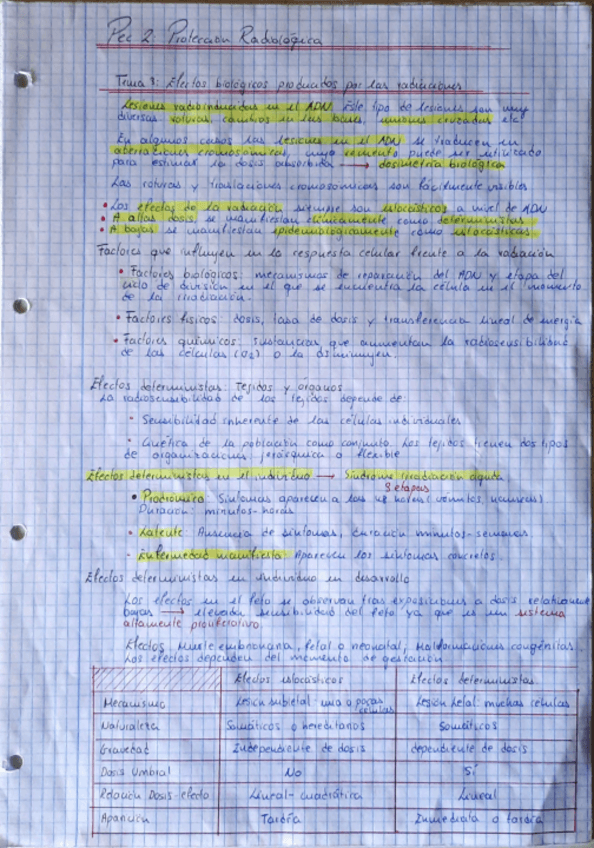 Pec 2: Protección Radiológica
Tema 1: Efectos biológicos producidos por las radiaciones
Lesiones radioinducidas en el ADN. Este tipo de lesiones son muy
diversas roturas, cambios en las bases, uniones cruzadas etc
En algunos casos las lesiones en el ADN se traducen en
aberraciones cromosómicas, cuyo aumento puede ser utilizado
para estimar la dosis absorbida → dosimetría biológica
Las roturas y traslaciones cromosómicas son fácilmente visibles
• Los efectos de la radiación siempre son estocásticos a nivel de ADN
• A altas dosis se manifiestan clínicamente como deterministas
• A bajas se manifiestan epidemiológicamente como estocásticas.
Factores que influyen en la respuesta celular frente a la radiación
• Factores biológicos: mecanismos de reparación del ADN y etapa del
ciclo de división en el que se encuentra la célula en el momento
de la irradiación.
• Factores físicos: dosis, tasa de dosis y transferencia lineal de energía
• Factores químicos: sustancias que aumentan la radiosensibilidad
de las células (O2) o la disminuyen.
Efectos deterministas: Tejidos y órganos
La radiosensibilidad de los tejidos depende de:
• Sensibilidad inherente de las células individuales
• Cinética de la población como conjunto. Los tejidos tienen dos tipos
de organizaciones jerárquica o flexible
Efectos deterministas en el individuo → Síndrome irradiación aguda
3 etapas
• Prodrómica: Síntomas aparecen a las 48 horas (vómitos, náuseas)
Duración: minutos-horas
• Latente: Ausencia de síntomas, duración minutos-semanas
• Enfermedad manifiesta: Aparecen los síntomas concretos.
Efectos deterministas en individuo en desarrollo
Los efectos en el feto se observan tras exposiciones a dosis relativamente
bajas → elevada sensibilidad del feto ya que es un sistema
altamente proliferativo.
Efectos muerte embrionaria, fetal o neonatal, malformaciones congénitas.
Los efectos dependen del momento de gestación
Efectos estocásticos Efectos deterministas.
Mecanismo Lesión subletal: una o pocas células Lesión letal: muchas células
Naturaleza Somáticos o hereditarios Somáticos
Gravedad Independiente de dosis dependiente de dosis
Dosis Umbral No Sí
Relación Dosis-efecto Lineal-cuadrática Lineal
Aparición Tardía Inmediata o tardía